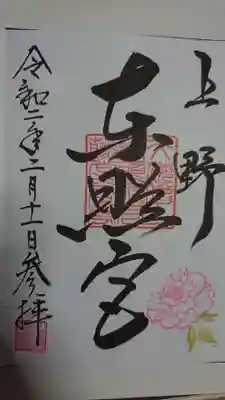 上野
東照宮
令和二年二月十一日参拝